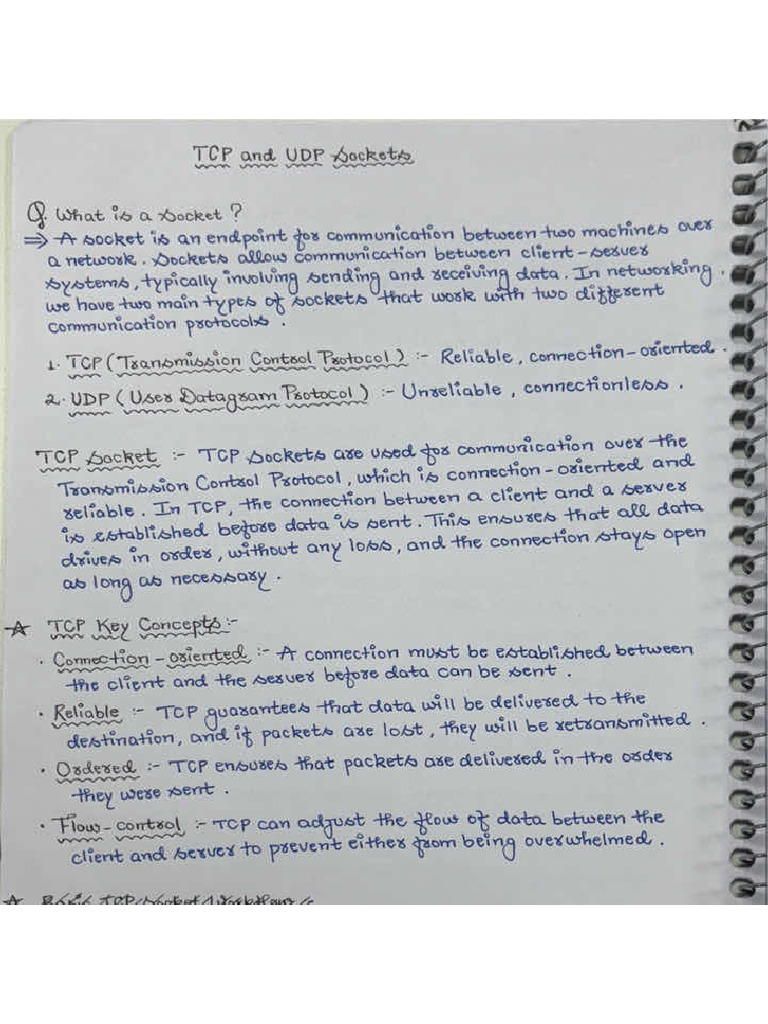 TCP and UDP Sockets
Q. What is a socket ?
⇒ A socket is an endpoint for communication between two machines over
a network. Sockets allow communication between client-server
systems, typically involving sending and receiving data. In networking,
we have two main types of sockets that work with two different
communication protocols.
1. TCP (Transmission Control Protocol) :- Reliable, connection-oriented.
2. UDP (User Datagram Protocol) :- Unreliable, connectionless.
TCP Socket :- TCP Sockets are used for communication over the
Transmission Control Protocol, which is connection-oriented and
reliable. In TCP, the connection between a client and a server
is established before data is sent. This ensures that all data
drives in order, without any loss, and the connection stays open
as long as necessary.
☆ TCP Key Concepts:-
· Connection-oriented :- A connection must be established between
the client and the server before data can be sent.
· Reliable :- TCP guarantees that data will be delivered to the
destination, and if packets are lost, they will be retransmitted.
· Ordered :- TCP ensures that packets are delivered in the order
they were sent.
· Flow-control :- TCP can adjust the flow of data between the
client and server to prevent either from being overwhelmed.
☆ Basic TCP Socket Workflow